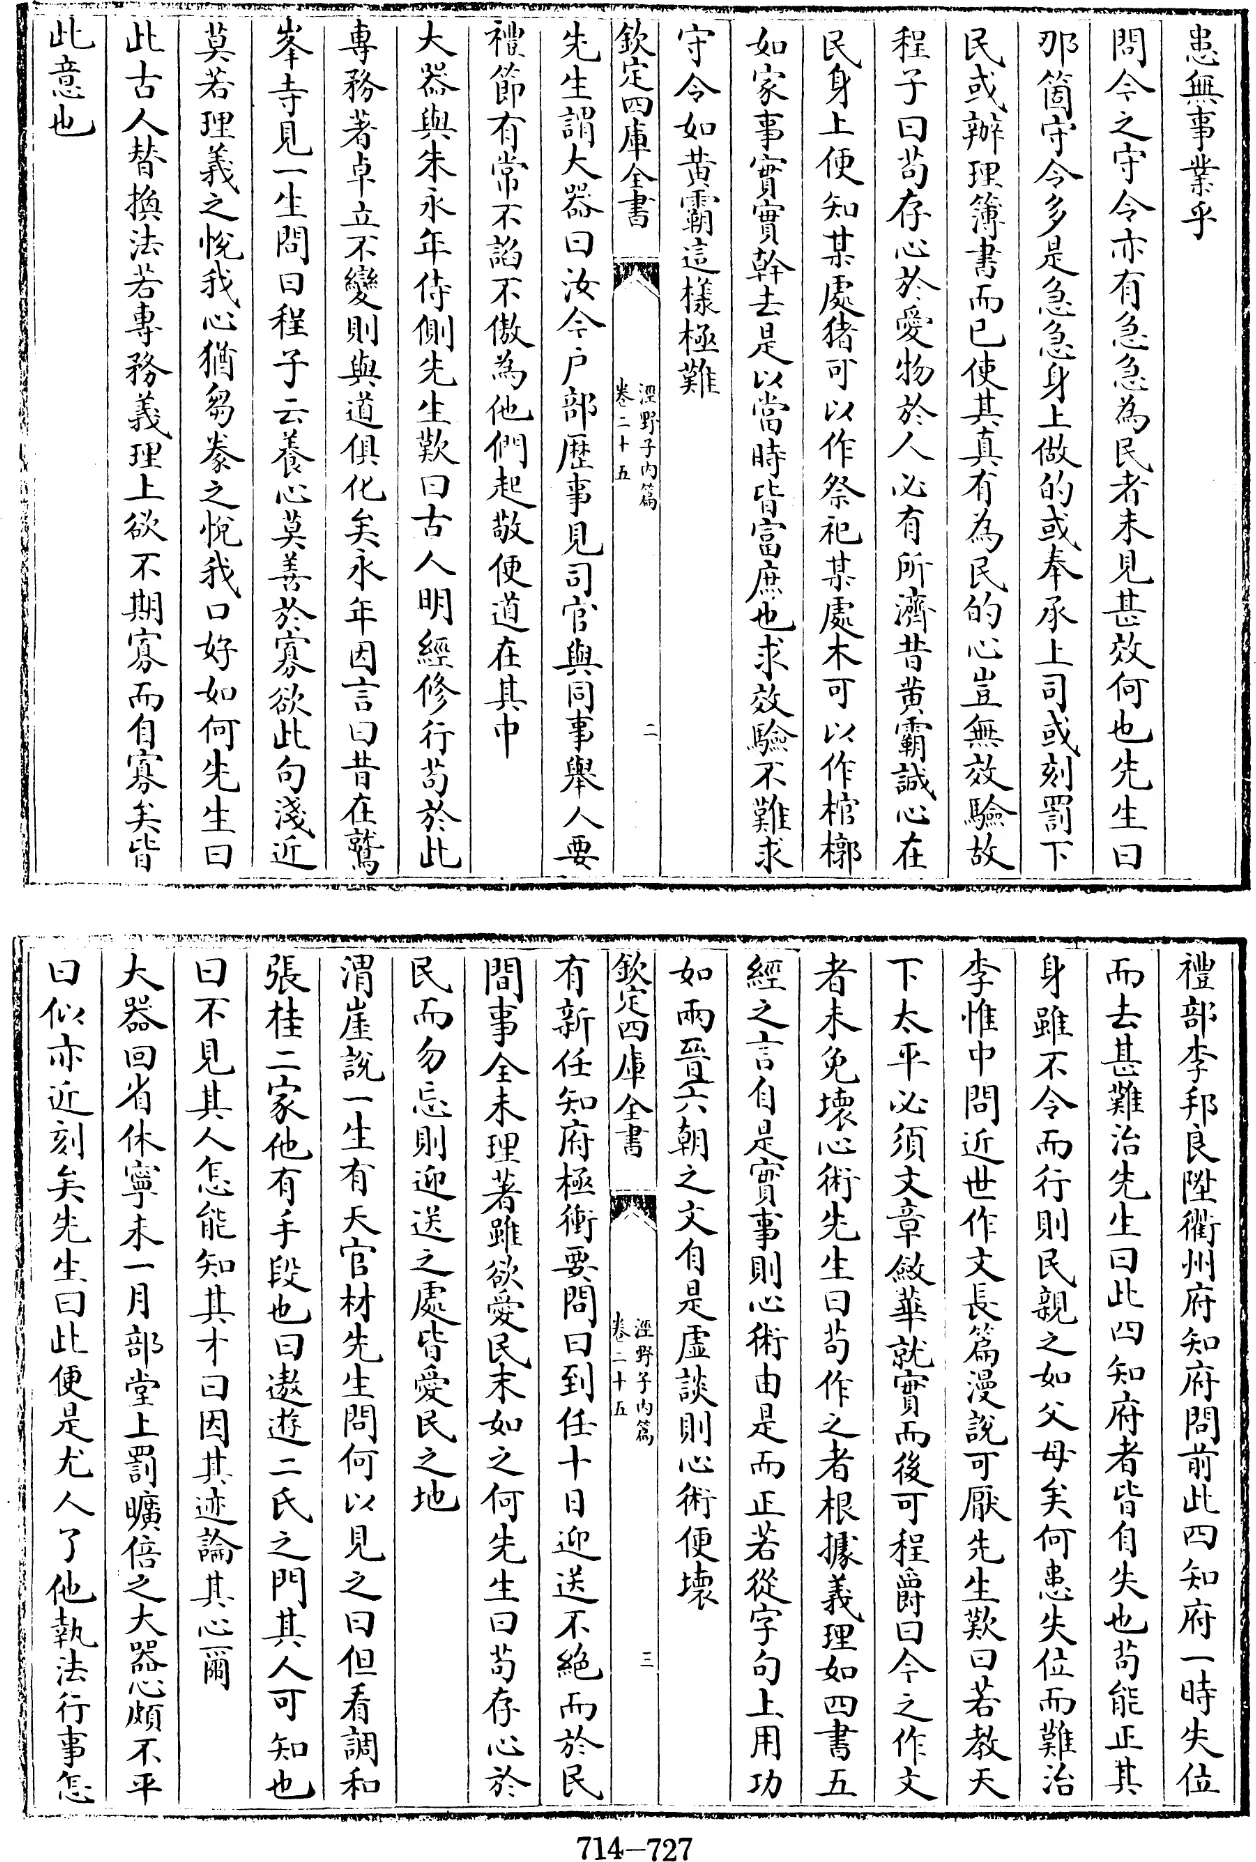 患無事業乎
問今之守令亦有急急為民者未見甚效何也先生曰
那箇守令多是急急身上做的或奉承上司或刻罰下
民或辦理簿書而已使其真有為民的心豈無效驗故
程子曰苟存心於愛物於人必有所濟昔黄霸誠心在
民身上便知某處猪可以作祭祀某處木可以作棺槨
如家事實實幹去是以當時皆富庶也求效驗不難求
守令如黄霸這樣極難
欽定四庫全書
涇野子内篇
卷二十五
二
先生謂大器曰汝今户部歴事見司官與同事舉人要
禮節有常不謟不傲為他們起敬便道在其中
大器與朱永年侍側先生歎曰古人明經修行苟於此
專務著卓立不變則與道俱化矣永年因言曰昔在鷲
峯寺見一生問曰程子云養心莫善於寡欲此句淺近
莫若理義之悅我心猶芻豢之悅我口好如何先生曰
此古人替換法若專務義理上欲不期寡而自寡矣皆
此意也
禮部李邦良陞衢州府知府問前此四知府一時失位
而去甚難治先生曰此四知府者皆自失也苟能正其
身雖不令而行則民親之如父母矣何患失位而難治
李惟中問近世作文長篇漫說可厭先生歎曰若教天
下太平必須文章斂華就實而後可程爵曰今之作文
者未免壞心術先生曰苟作之者根據義理如四書五
經之言自是實事則心術由是而正若從字句上用功
如兩晉六朝之文自是虛談則心術便壞
欽定四庫全書
涇野子内篇
卷二十五
三
有新任知府極衝要問曰到任十日迎送不絶而於民
間事全未理著雖欲愛民末如之何先生曰苟存心於
民而勿忘則迎送之處皆愛民之地
渭崖說一生有天官材先生問何以見之曰但看調和
張桂二家他有手段也曰遨遊二氏之門其人可知也
曰不見其人怎能知其才曰因其迹論其心爾
大器回省休寧未一月部堂上罰曠倍之大器心頗不平
曰似亦近刻矣先生曰此便是尤人了他執法行事怎
714—727